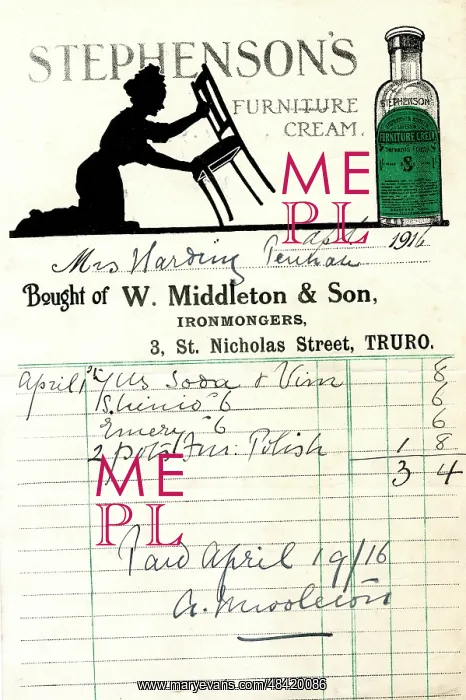 STEPHENSON'S
FURNITURE
CREAM.
STEPHENSON
FURNITURE CREAM
ME
PL
April 1916
Mrs Harding
Bought of W. Middleton & Son,
IRONMONGERS,
3, St. Nicholas Street, TRURO.
April 1st 7 lbs Soda & Vim 8
6
Emery 6 6
2 pots Fur: Polish 1 8
3 4
ME
PL
Paid April 19/16
A. Middleton
www.maryevans.com/48420086